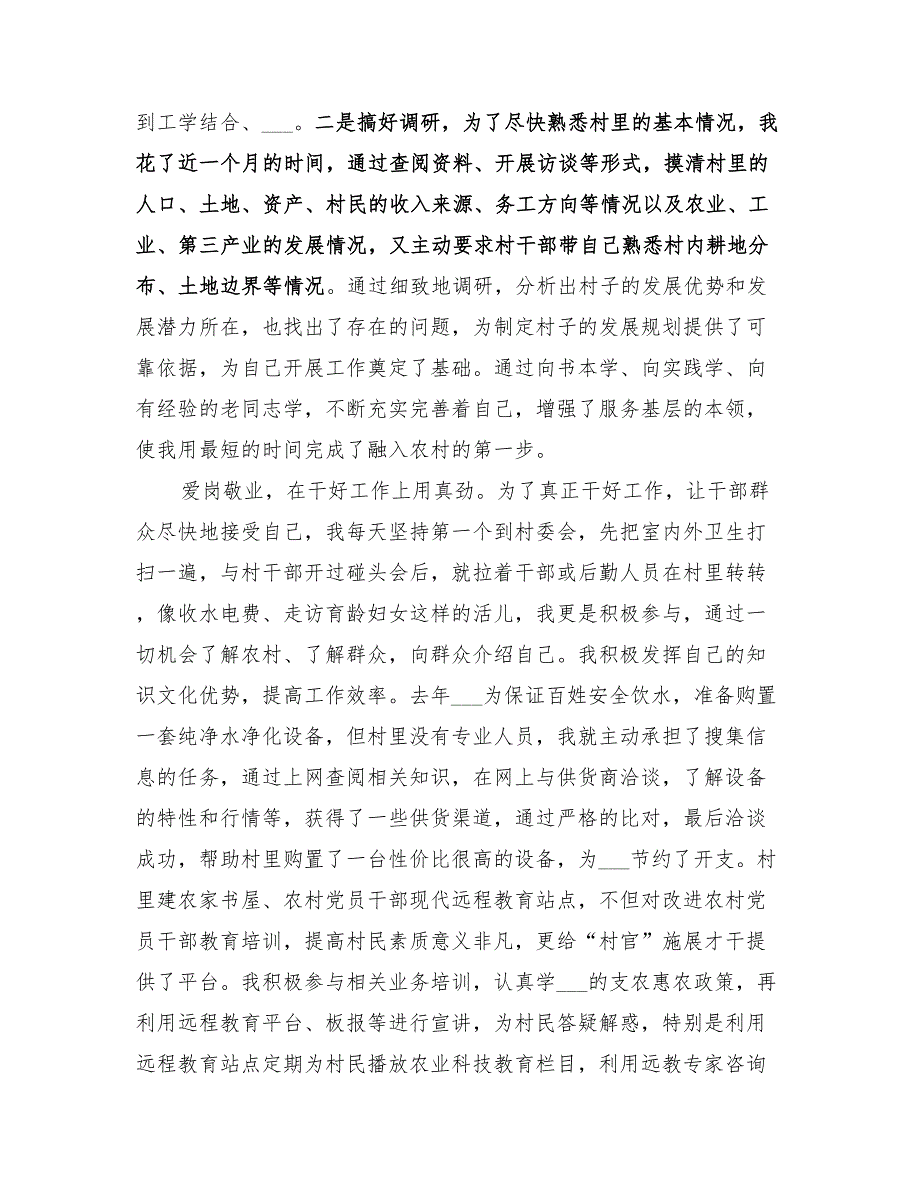 到工学结合、___。二是搞好调研，为了尽快熟悉村里的基本情况，我
花了近一个月的时间，通过查阅资料、开展访谈等形式，摸清村里的
人口、土地、资产、村民的收入来源、务工方向等情况以及农业、工
业、第三产业的发展情况，又主动要求村干部带自己熟悉村内耕地分
布、土地边界等情况。通过细致地调研，分析出村子的发展优势和发
展潜力所在，也找出了存在的问题，为制定村子的发展规划提供了可
靠依据，为自己开展工作奠定了基础。通过向书本学、向实践学、向
有经验的老同志学，不断充实完善着自己，增强了服务基层的本领，
使我用最短的时间完成了融入农村的第一步。
爱岗敬业，在干好工作上用真劲。为了真正干好工作，让干部群
众尽快地接受自己，我每天坚持第一个到村委会，先把室内外卫生打
扫一遍，与村干部开过碰头会后，就拉着干部或后勤人员在村里转转
，像收水电费、走访育龄妇女这样的活儿，我更是积极参与，通过一
切机会了解农村、了解群众，向群众介绍自己。我积极发挥自己的知
识文化优势，提高工作效率。去年___为保证百姓安全饮水，准备购置
一套纯净水净化设备，但村里没有专业人员，我就主动承担了搜集信
息的任务，通过上网查阅相关知识，在网上与供货商洽谈，了解设备
的特性和行情等，获得了一些供货渠道，通过严格的比对，最后洽谈
成功，帮助村里购置了一台性价比很高的设备，为___节约了开支。村
里建农家书屋、农村党员干部现代远程教育站点，不但对改进农村党
员干部教育培训，提高村民素质意义非凡，更给“村官”施展才干提
供了平台。我积极参与相关业务培训，认真学___的支农惠农政策，再
利用远程教育平台、板报等进行宣讲，为村民答疑解惑，特别是利用
远程教育站点定期为村民播放农业科技教育栏目，利用远教专家咨询